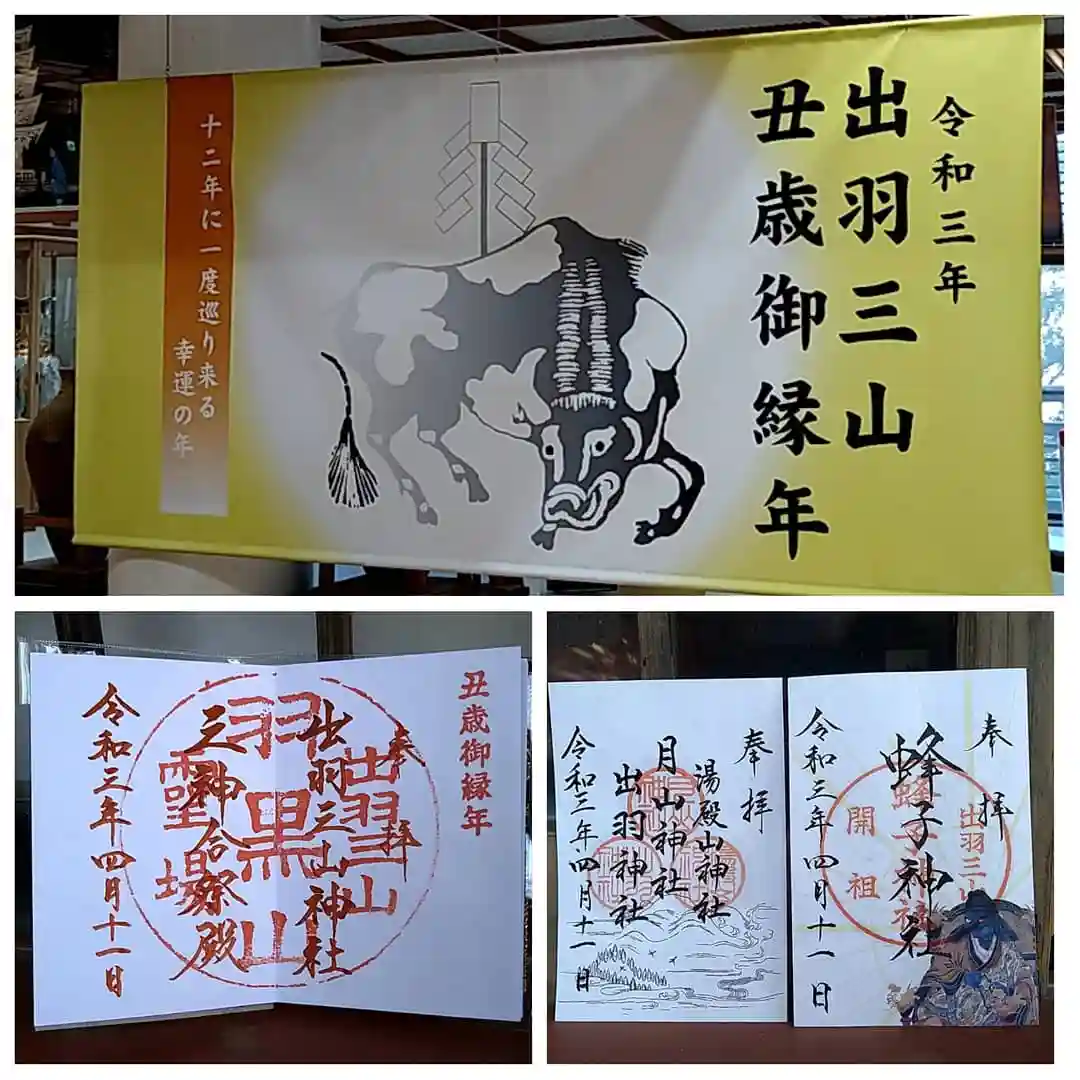 令和三年
出羽三山
丑歳御縁年
十二年に一度巡り来る
幸運の年
丑歳御縁年
奉拝
出羽三山神社
三神合祭殿
令和三年四月十一日
出羽三山
羽黒山
霊場
奉拝
湯殿山神社
月山神社
出羽神社
令和三年四月十一日
奉拝
蜂子神社
令和三年四月十一日
出羽三山
蜂子神社
開祖